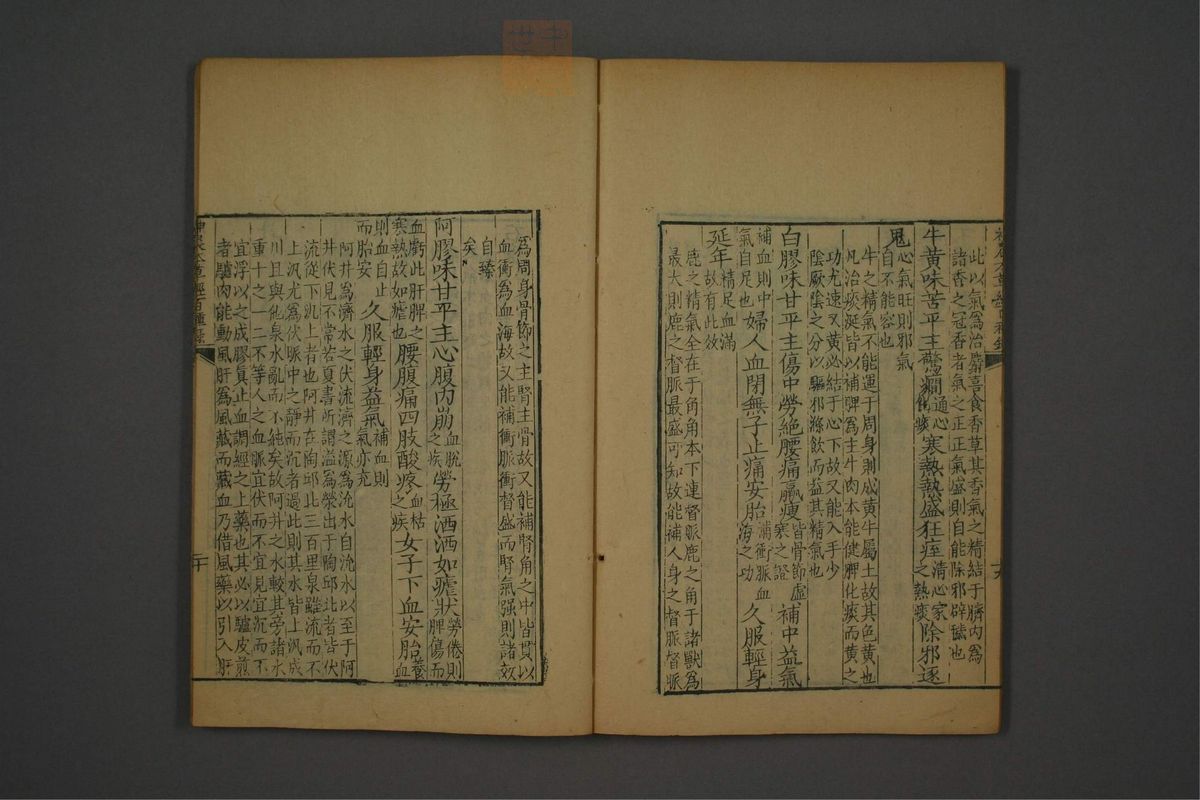 此以氣爲治麝喜食香草其香氣之精結于臍內爲
諸香之冠香者氣之正正氣盛則自能除邪辟穢也
牛黃味苦平主驚癇通心化痰寒熱熱盛狂痓清心家之熱痰除邪逐
鬼心氣旺則邪氣自不能容也
牛之精氣不能運于周身則成黃牛屬土故其色黃也
凡治痰涎皆以補脾爲主牛肉本能健脾化痰而黃之
功尤速又黃必結于心下故又能入手少
陰厥陰之分以驅邪滌飲而益其精氣也
白膠味甘平主傷中勞絕腰痛羸瘦皆骨節虛寒之證補中益氣
補血則中氣自足也婦人血閉無子止痛安胎補衝脈血海之功久服輕身
延年精足血滿故有此效
鹿之精氣全在于角角本下連督脈鹿之角于諸獸爲
最大則鹿之督脈最盛可知故能補人身之督脈督脈
爲周身骨節之主腎主骨故又能補腎角之中皆貫以
血衝爲血海故又能補衝脈衝督盛而腎氣强則諸效
自臻矣
阿膠味甘平主心腹內崩血脫之疾勞極洒洒如瘧狀勞倦則脾傷而
血虧此肝脾之寒熱故如瘧也腰腹痛四肢酸疼血枯之疾女子下血安胎養血
則血自止而胎安久服輕身益氣補血則氣亦充
阿井爲濟水之伏流濟之源爲沇水自沇水以至于阿
井伏見不常若夏書所謂溢爲滎出于陶邱北者皆伏
流從下汎上者也阿井在陶邱北三百里泉雖流而不
上汎尤爲伏脈中之靜而沉者過此則其水皆上汎成
川且與他泉水亂而不純矣故阿井之水較其旁諸水
重十之一二不等人之血脈宜伏而不宜見宜沉而不
宜浮以之成膠真止血調經之上藥也其必以驢皮煎
者驢肉能動風肝爲風藏而藏血乃借風藥以引入肝
神農本草經百種錄
二十